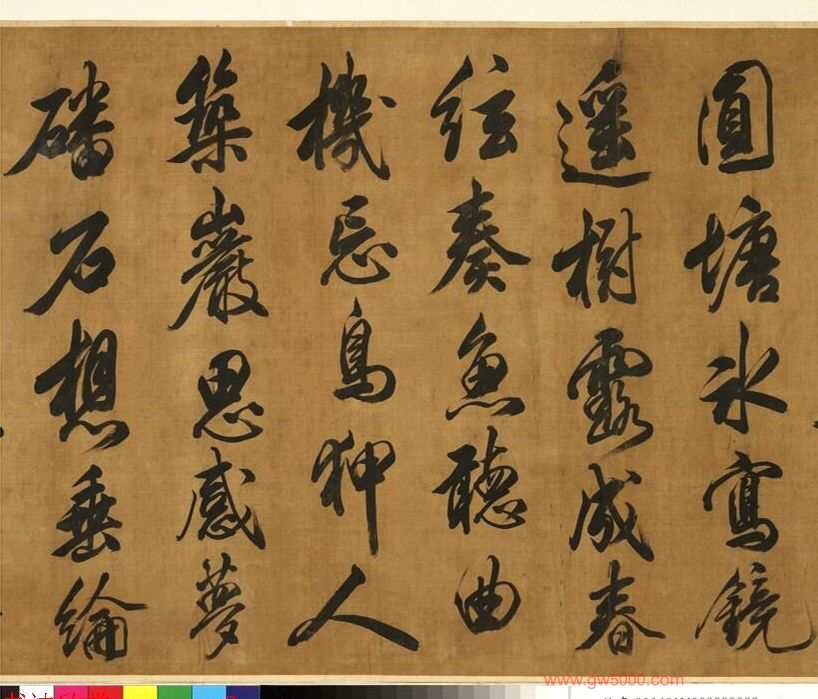 圓塘氷寫鏡
遥樹露成春
絃奏魚聽曲
機忘鳥狎人
築巖思感夢
磻石想垂綸
www.gw5000.com